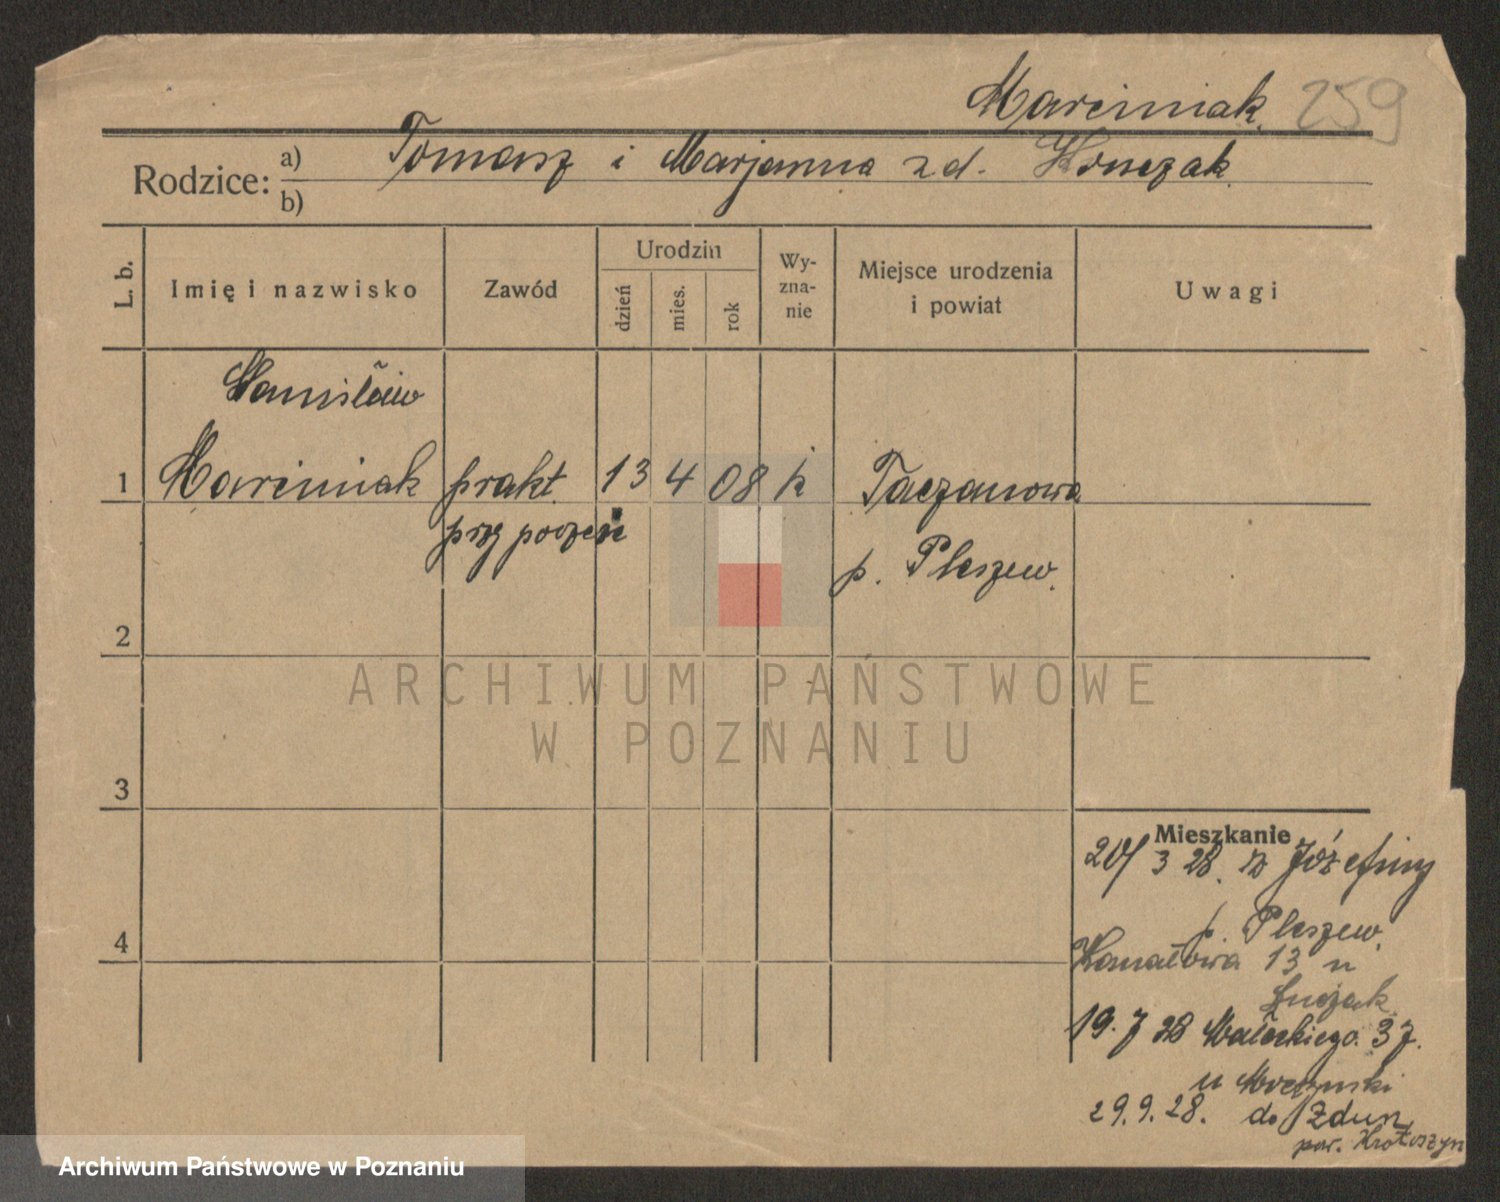 Marciniak 259
Rodzice: a) Tomasz i Marjanna zd.
b)
L. b.
Imię i nazwisko
Zawód
Urodzin
dzień
mies.
rok
Wy-
zna-
nie
Miejsce urodzenia
i powiat
Uwagi
Stanisław
1 Marciniak prakt. 13 4 08 k Taczanowa
przy poczcie
p. Pleszew.
2
3
4
Mieszkanie
20/3 28. z Józefiny
p. Pleszew.
Kanałowa 13 u
Łuczak
19.7 28 Małeckiego 37.
u
29.9.28. do Zdun
pow. Krotoszyn
ARCHIWUM PAŃSTWOWE
W POZNANIU
Archiwum Państwowe w Poznaniu